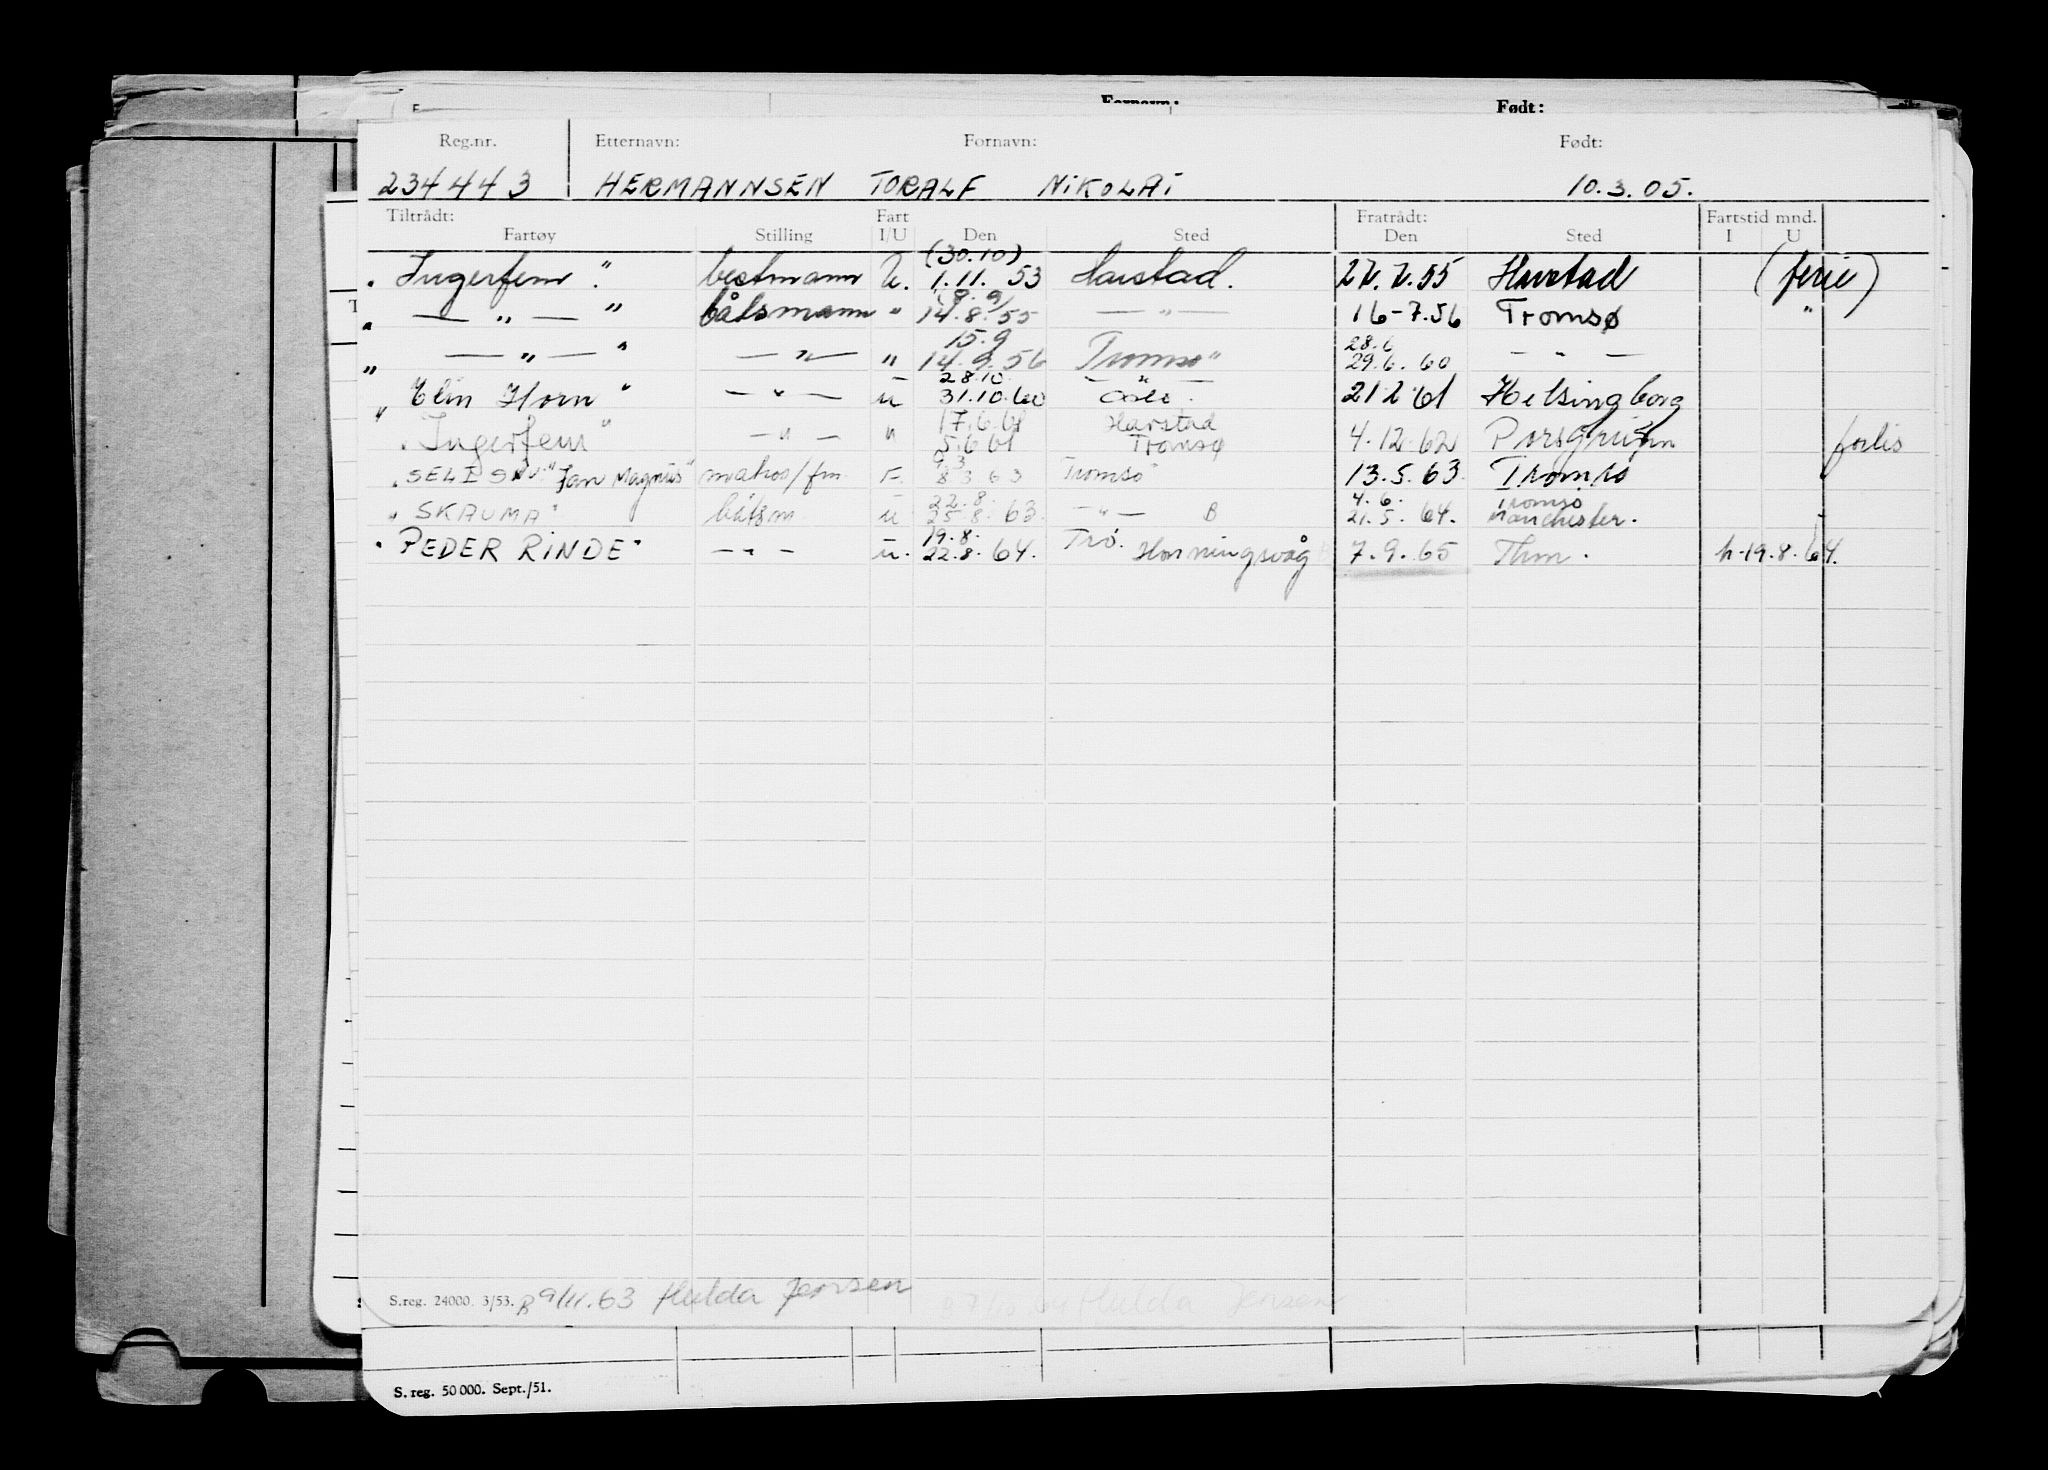 Født:
Reg.nr. Etternavn: Fornavn: Født:
234443 HERMANNSEN TORALF NIKOLAI 10.3.05.
Tiltrådt: Fart Fratrådt: Fartstid mnd.
Fartøy Stilling I/U Den Sted Den Sted I U
(30.10)
" Ingerfem " bestmann U. 1.11.53 Harstad. 27.7.55 Harstad (ferie)
(8.9)
" — " — " båtsmann " 14.8.55 — " — 16-7.56 Tromsø "
15.9 28.6
" — " — " — " — " 14.9.56 Tromsø 29.6.60 — " —
28.10. — " —
" Elin Horn " — " — u 31.10.60 Oslo. 21.2.61 Helsingborg
17.6.61 Harstad
" Ingerfem " — " — " 5.6.61 Tromsø 4.12.62 Porsgrunn forlis
" Jan Magnus" matros/fm F. 8.3.63 Tromsø 13.5.63 Tromsø
22.8. 4.6. Tromsø
" SKAUMA " båtsm u 25.8.63. — " — B 21.5.64. Manchester.
19.8.
" PEDER RINDE " — " — u. 22.8.64. Trø. Honningsvåg 7.9.65 Thm. h.19.8.64.
S.reg. 24000. 3/53. B 9/11.63 Hulda Jensen Hulda Jensen
S. reg. 50000. Sept./51.